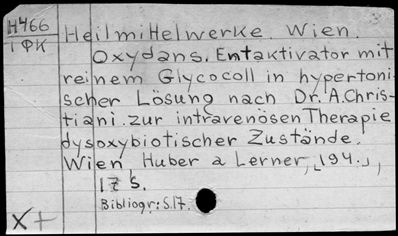 H466
1 ФК
Heilmittelwerke. Wien.
Oxydans. Entaktivator mit
reinem Glycocoll in hypertoni-
scher Lösung nach Dr. A. Chris-
tiani zur intravenösen Therapie
dysoxybiotischer Zustände.
Wien, Huber a Lerner, 194.,
17 S.
Bibliogr: S.17.
X+